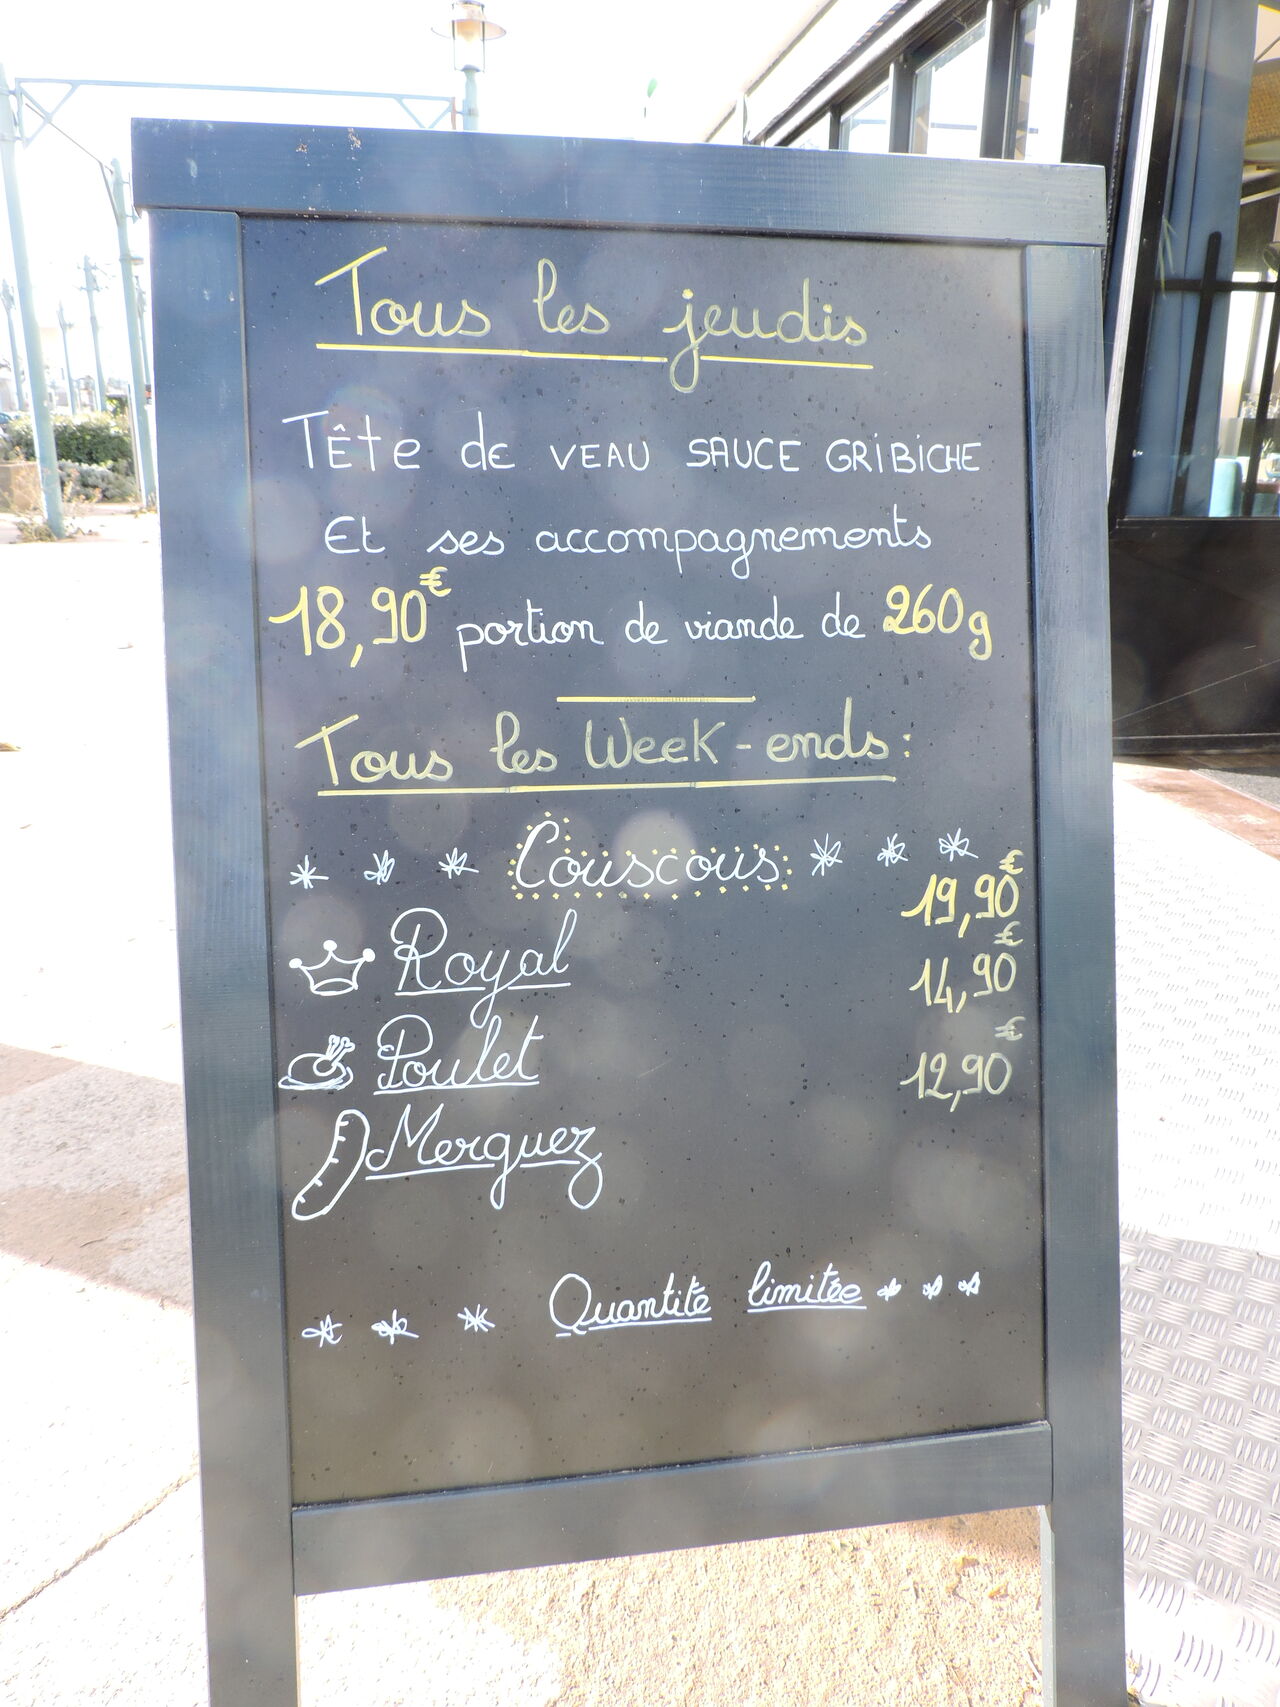 Tous les jeudis
Tête de VEAU SAUCE GRIBICHE
Et ses accompagnements
18,90€ portion de viande de 260g
Tous les Week-ends:
* * * Couscous * * *
Royal 19,90€
Poulet 14,90€
Merguez 12,90€
* * * Quantité limitée * * *